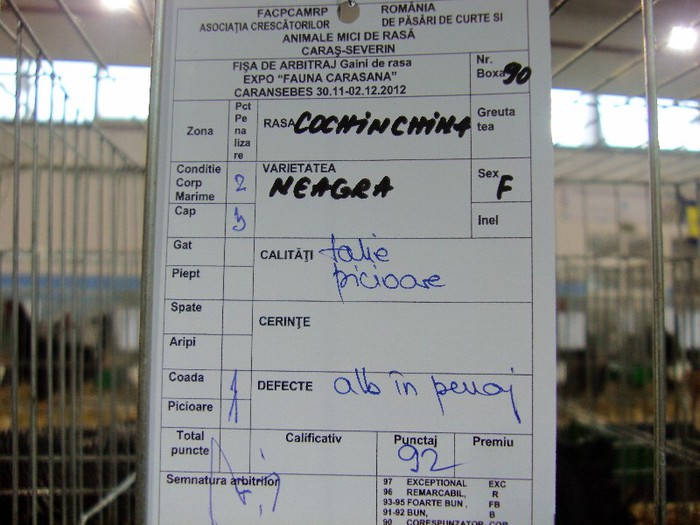 FACPCAMRP ROMÂNIA
ASOCIAȚIA CRESCĂTORILOR DE PĂSĂRI DE CURTE SI
ANIMALE MICI DE RASĂ
CARAȘ-SEVERIN
FIȘA DE ARBITRAJ Gaini de rasa
EXPO “FAUNA CARASANA”
CARANSEBES 30.11-02.12.2012
Nr.
Boxa 90
Zona
Pct
Pe
na
liza
re
RASA COCHINCHINA
Greuta
tea
Conditie
Corp
Marime
2
VARIETATEA
NEAGRA
Sex
F
Cap 3
Inel
Gat
CALITĂȚI talie
picioare
Piept
Spate
CERINȚE
Aripi
Coada 1
DEFECTE alb în penaj
Picioare 1
Total
puncte
Calificativ
Punctaj
92
Premiu
Semnatura arbitrilor
97 EXCEPTIONAL EXC
96 REMARCABIL, R
93-95 FOARTE BUN, FB
91-92 BUN, B
90 CORESPUNZATOR COR